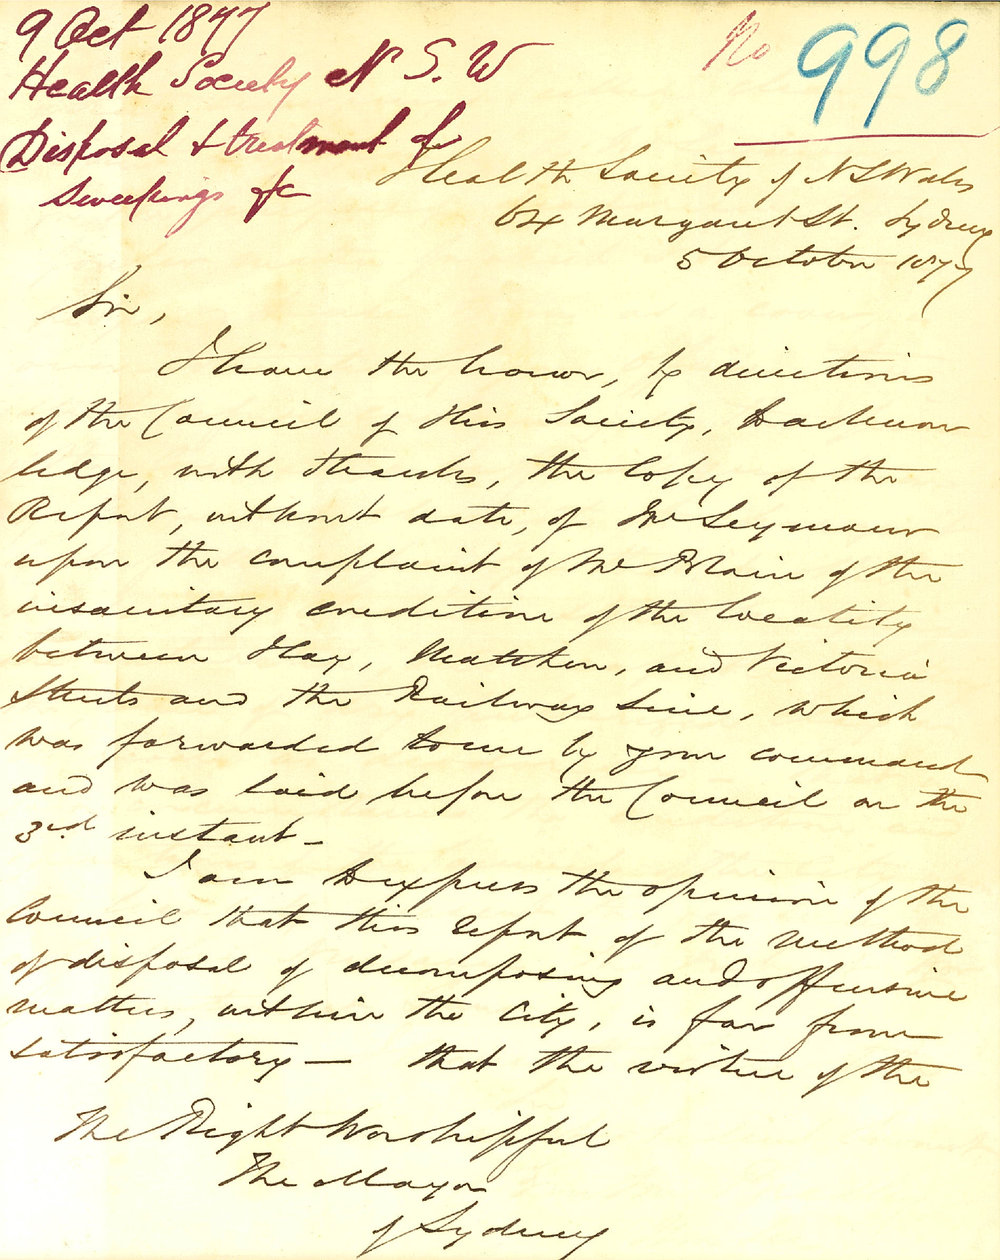 9 Oct 1877
Health Society N S. W
Disposal & treatment of
Sweepings &c
No 998
Health Society of N S Wales
64 Margaret St. Sydney
5 October 1877
Sir,
I have the honor, by directions
of the Council of this Society, to acknow
ledge, with thanks, the Copy of the
Report, without date, of Mr Seymour
upon the complaint of Mr Blair of the
insanitary condition of the locality
between Hay, Matthew, and Victoria
Streets and the Railway Line, which
was forwarded to me by your command
and was laid before the Council on the
3rd instant –
I am to express the opinion of the
Council that this report of the method
of disposal of decomposing and offensive
matters, within the City, is far from
satisfactory – that the virtue of the
The Right Worshipful
The Mayor
of Sydney